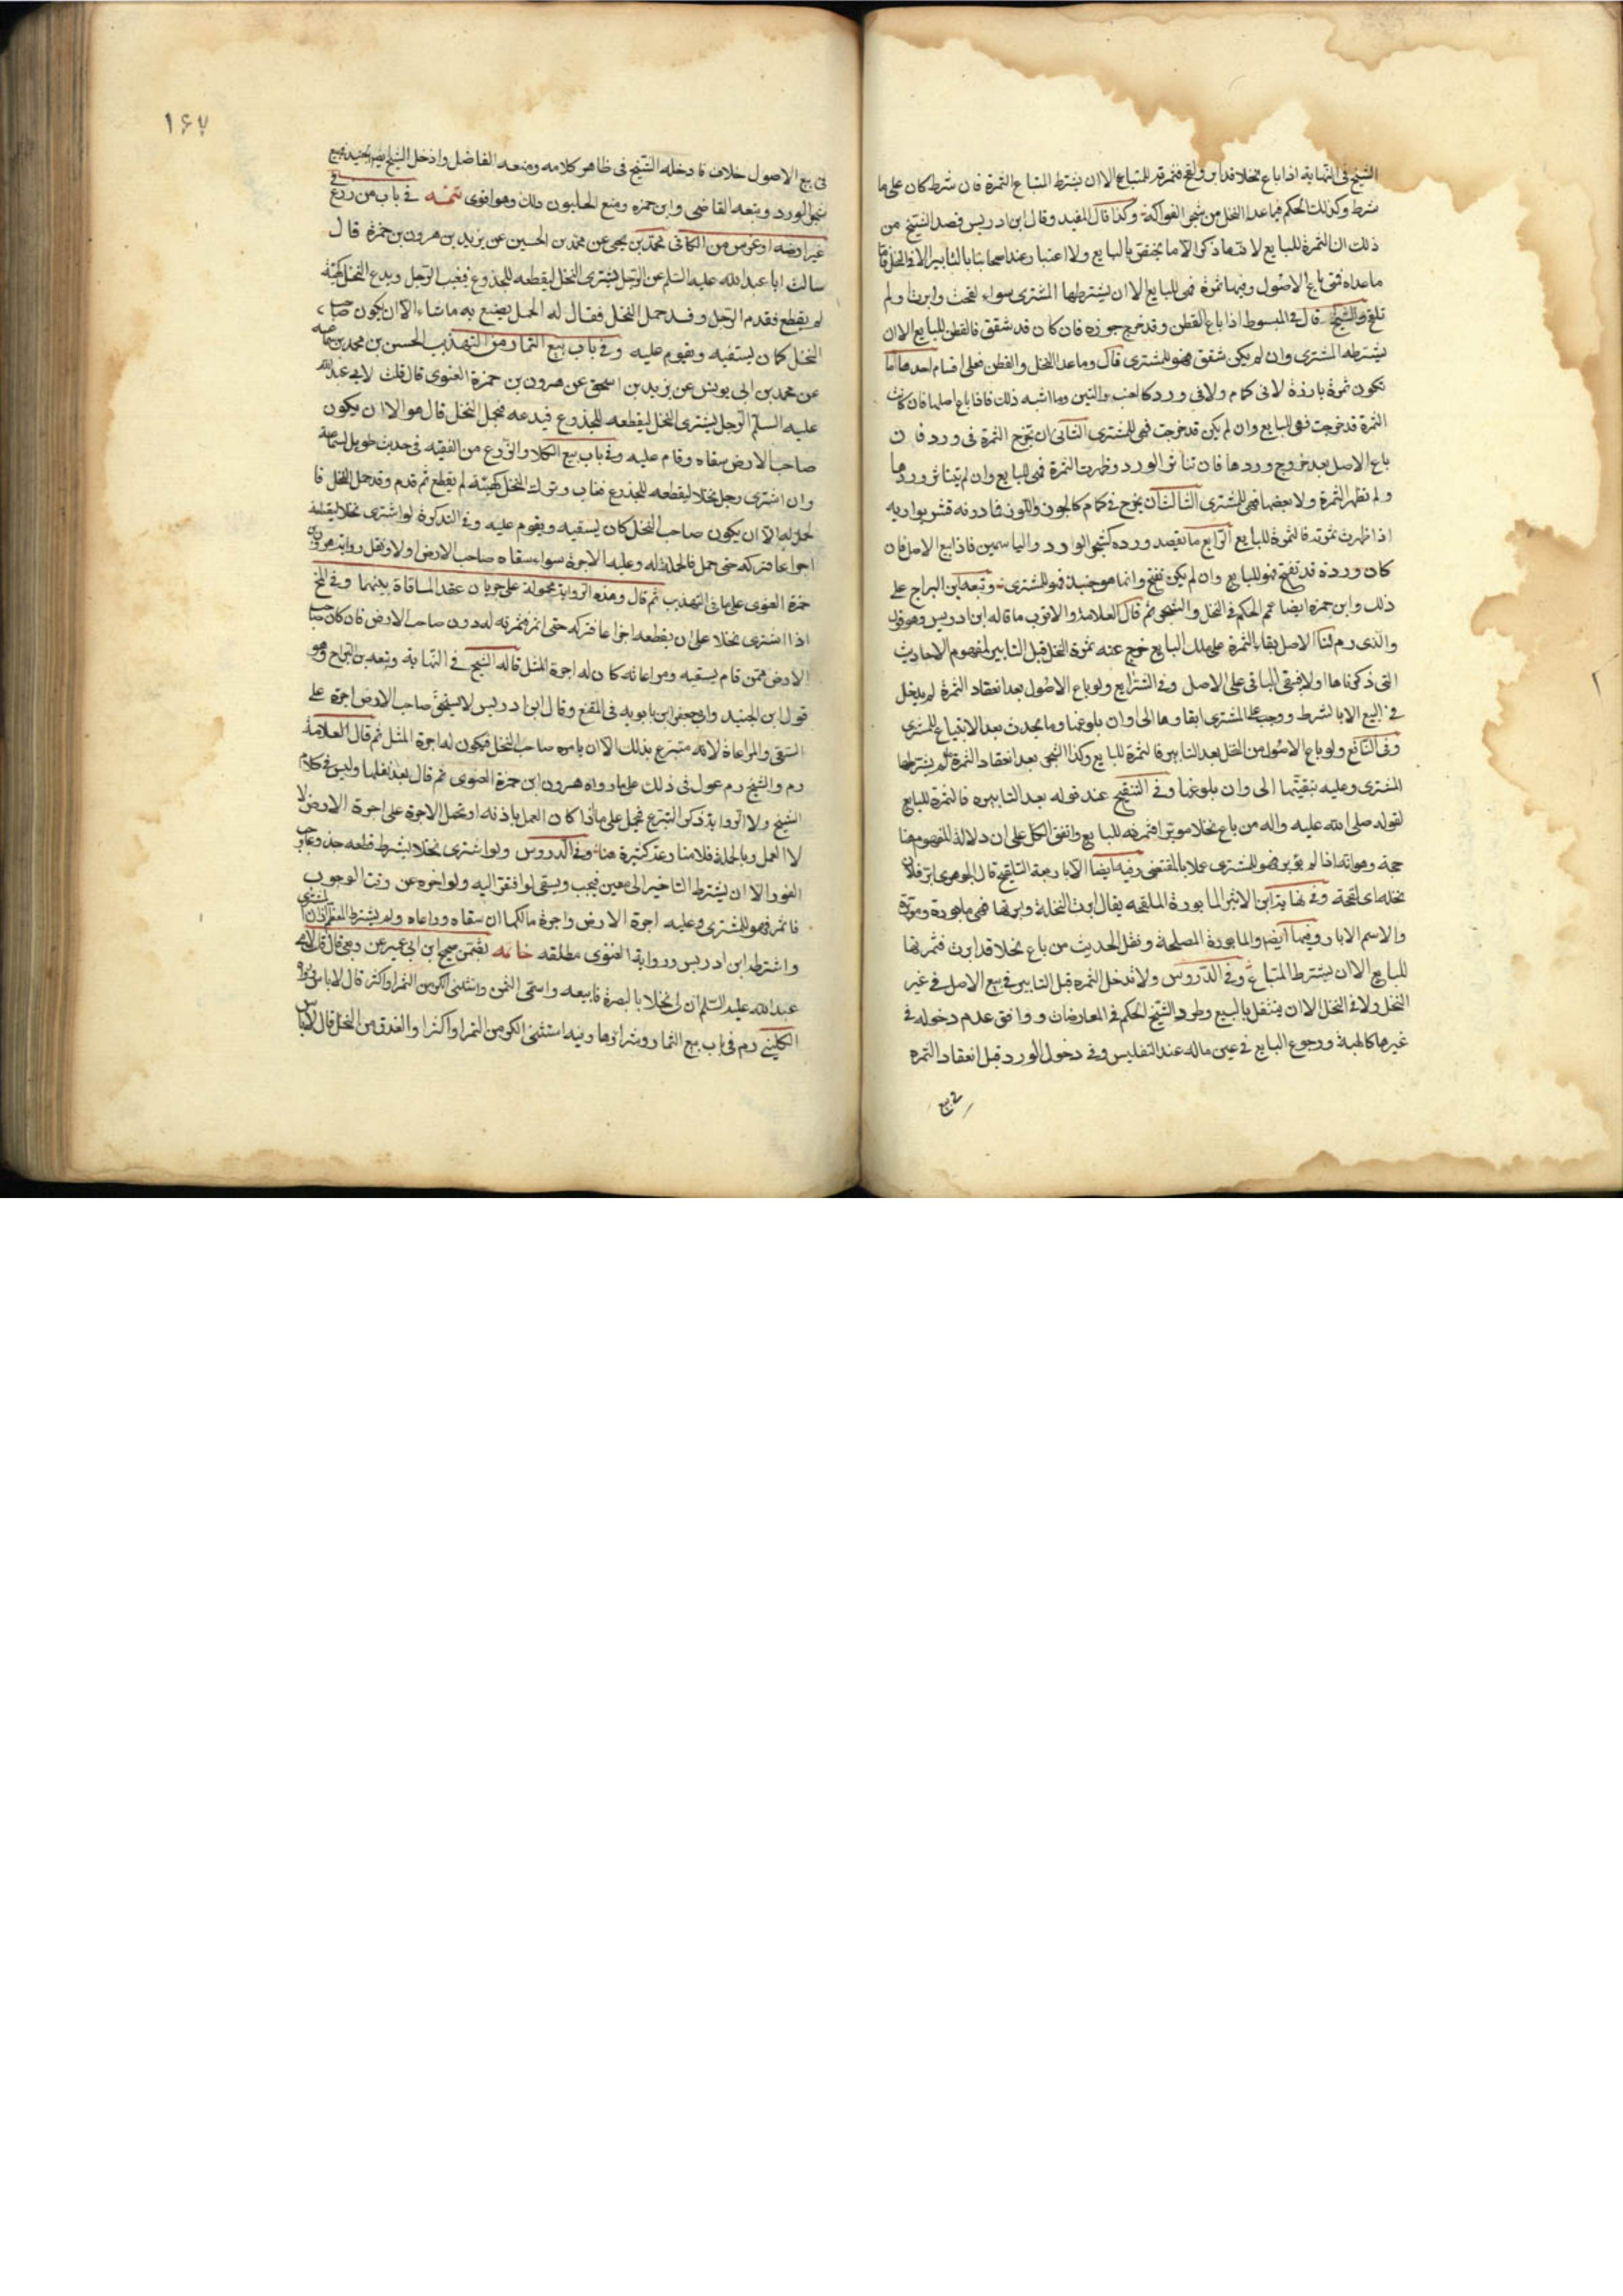 الشيخ في النهاية اذا باع نخلا قد ابر ولقح فثمرته للمبتاع الا ان يشترط المبتاع الثمرة فان شرط كان على ما
شرط وكذلك الحكم فيما عدا النخل من شجر الفواكه وكذا قال المفيد وقال ابن ادريس قصد الشيخ من
ذلك ان الثمرة للبايع لانه ما ذكر الا ما يختص بالبايع ولا اعتبار عند اصحابنا بالتابير الا في النخل فاما
ما عداه فمتى باع الاصول وفيها ثمرة فهي للبايع الا ان يشترطها المشتري سواء لقحت وابرت او لم
تلقح والشيخ قال في المبسوط اذا باع القطن وقد خرج جوزه فان كان قد شقق فالقطن للبايع الا ان
يشترطه المشتري وان لم يكن شقق فهو للمشتري قال وما عدا النخل والقطن فعلى اقسام احدها اما
تكون ثمرة بارزة لا في كمام ولا في ورد كالعنب والتين وما اشبه ذلك فاذا باع اصلها فان كانت
الثمرة قد خرجت فهي للبايع وان لم يكن قد خرجت فهي للمشتري الثاني ان تخرج الثمرة في ورد فان
باع الاصل بعد خروج وردها فان تناثر الورد وظهرت الثمرة فهي للبايع وان لم يتناثر وردها
ولم تظهر الثمرة ولا بعضها فهي للمشتري الثالث ان يخرج في كمام كالجوز واللوز فما دونه قشر يواريه
اذا ظهرت ثمرته فالثمرة للبايع الرابع ما يقصد ورده كشجر الورد والياسمين فاذا بيع الاصل فان
كان ورده قد تفتح فهو للبايع وان لم يكن تفتح وانما هو جنبذ فهو للمشتري وتبعه ابن البراج على
ذلك وابن حمزة ايضا عمم الحكم في النخل والشجر ثم قال العلامة والاقرب ما قاله ابن ادريس وهو قول
والدي رم لنا الاصل بقاء الثمرة على ملك البايع خرج عنه ثمرة النخل قبل التابير لمفهوم الاحاديث
التي ذكرناها اولا فيبقى الباقي على الاصل وفي الشرايع ولو باع الاصول بعد انعقاد الثمرة لم يدخل
في البيع الا بالشرط ووجب على المشتري ابقاوها الى اوان بلوغها وما يحدث بعد الابتياع للمشتري
وفي النافع ولو باع الاصول من النخل بعد التابير فالثمرة للبايع وكذا الشجر بعد انعقاد الثمرة لم يشترطها
المشتري وعليه تبقيتها الى اوان بلوغها وفي التنقيح عند قوله بعد التابير فالثمرة للبايع
لقوله صلى الله عليه واله من باع نخلا موبرا فثمرته للبايع واتفق الكل على ان دلالة المفهوم هنا
حجة وهو انه اذا لم يؤبر فهو للمشتري عملا بالمقتضي وفيه ايضا الابار بمعنى التلقيح قال الجوهري ابر فلان
نخله اي لقحه وفي نهاية ابن الاثير المابورة الملقحه يقال ابرت النخلة وابرتها فهي مابورة ومؤبرة
والاسم الابار وفيها ايضا والمابورة المصلحة ونقل الحديث من باع نخلا قد ابرت فثمرتها
للبايع الا ان يشترط المبتاع وفي الدروس ولا تدخل الثمرة قبل التابير في بيع الاصل في غير
النخل ولا في النخل الا ان ينتقل بالبيع وطرد الشيخ الحكم في المعاوضات ووافق عدم دخوله في
غيرها كالهبة ورجوع البايع في عين ماله عند التفليس وفي دخول الورد قبل انعقاد الثمره
في بيع
١۶٧
في بيع الاصول خلاف فادخله الشيخ في ظاهر كلامه ومنعه الفاضل وادخل الشيخ
شجر الورد وتبعه القاضي وابن حمزه ومنع الحليون ذلك وهو اقوى تتمه في باب من زرع في
غير ارضه او غرس من الكافي محمد بن يحيى عن محمد بن الحسين عن يزيد بن هرون بن حمزة قال
سالت ابا عبد الله عليه السلم عن الرجل يشتري النخل ليقطعه للجذوع فيغيب الرجل ويدع النخل كهيئة
لم يقطع فقدم الرجل وقد حمل النخل فقال له الحمل يصنع به ما شاء الا ان يكون صاحب
النخل كان يسقيه ويقوم عليه وفي باب بيع الثمار من التهذيب الحسن بن محمد بن سماعه
عن محمد بن ابي يونس عن يزيد بن اسحق عن هرون بن حمزة الغنوي قال قلت لابي عبد الله
عليه السلم الرجل يشتري النخل ليقطعه للجذوع فيدعه فيحمل النخل قال هو له الا ان يكون
صاحب الارض سقاه وقام عليه وفي باب بيع الكلاء والزرع من الفقيه في حديث طويل لسماعة
وان اشترى رجل نخلا ليقطعه للجذوع فغاب وترك النخل كهيئته لم يقطع ثم قدم وقد حمل النخل فا
لحمل له الا ان يكون صاحب النخل كان يسقيه ويقوم عليه وفي التذكرة لو اشترى نخلا ليقطعه
اجذاعا فتركه حتى حمل فالحمل له وعليه الاجرة سواء سقاه صاحب الارض اولا ونقل رواية هرون بن
حمزة الغنوي على ما في التهذيب ثم قال وهذه الرواية محمولة على جريان عقد المساقاة بينهما وفي المخ
اذا اشترى نخلا على ان يقطعه اجذاعا فتركه حتى اثمر فثمرته له دون صاحب الارض فان كان صاحب
الارض ممن قام بسقيه ومراعاته كان له اجرة المثل قاله الشيخ في النهاية وتبعه بن البراج وهو
قول ابن الجنيد وابي جعفر ابن بابويه في المقنع وقال ابن ادريس لا يستحق صاحب الارض اجرة على
السقي والمراعاة لانه متبرع بذلك الا ان يامره صاحب النخل فيكون له اجرة المثل ثم قال العلامة
رم والشيخ رم عول في ذلك على ما رواه هرون ابن حمزة الغنوي ثم قال بعد نقلها وليس في كلام
الشيخ ولا الرواية ذكر التبرع فيحمل على ما اذا كان العمل باذنه او تحمل الاجرة على اجرة الارض لا
لا العمل وبالجملة فلا منازعة كثيرة هنا وفي الدروس ولو اشترى نخلا بشرط قطعه جذوعا وجب
الفور الا ان يشترط التاخير الى معين فيجب ويبقى لو اتفقا اليه ولو اخره عن وقت الوجوب
فاثمر فهو للمشتري وعليه اجرة الارض واجرة مالكها ان سقاه وراعاه ولم يشترط
واشترطه ابن ادريس ورواية الغنوي مطلقه خاتمه تضمن صحيح ابن ابي عمير عن ربعي قال قلت لابي
عبد الله عليه السلم ان لي نخلا بالبصرة فابيعه واسمى الثمن واستثنى الكر من التمر او اكثر قال لا باس ورواه
الكليني رم في باب بيع الثمار وشراؤها وفيه استثنى الكر من التمر او اكثر او العذق من النخل قال لا باس